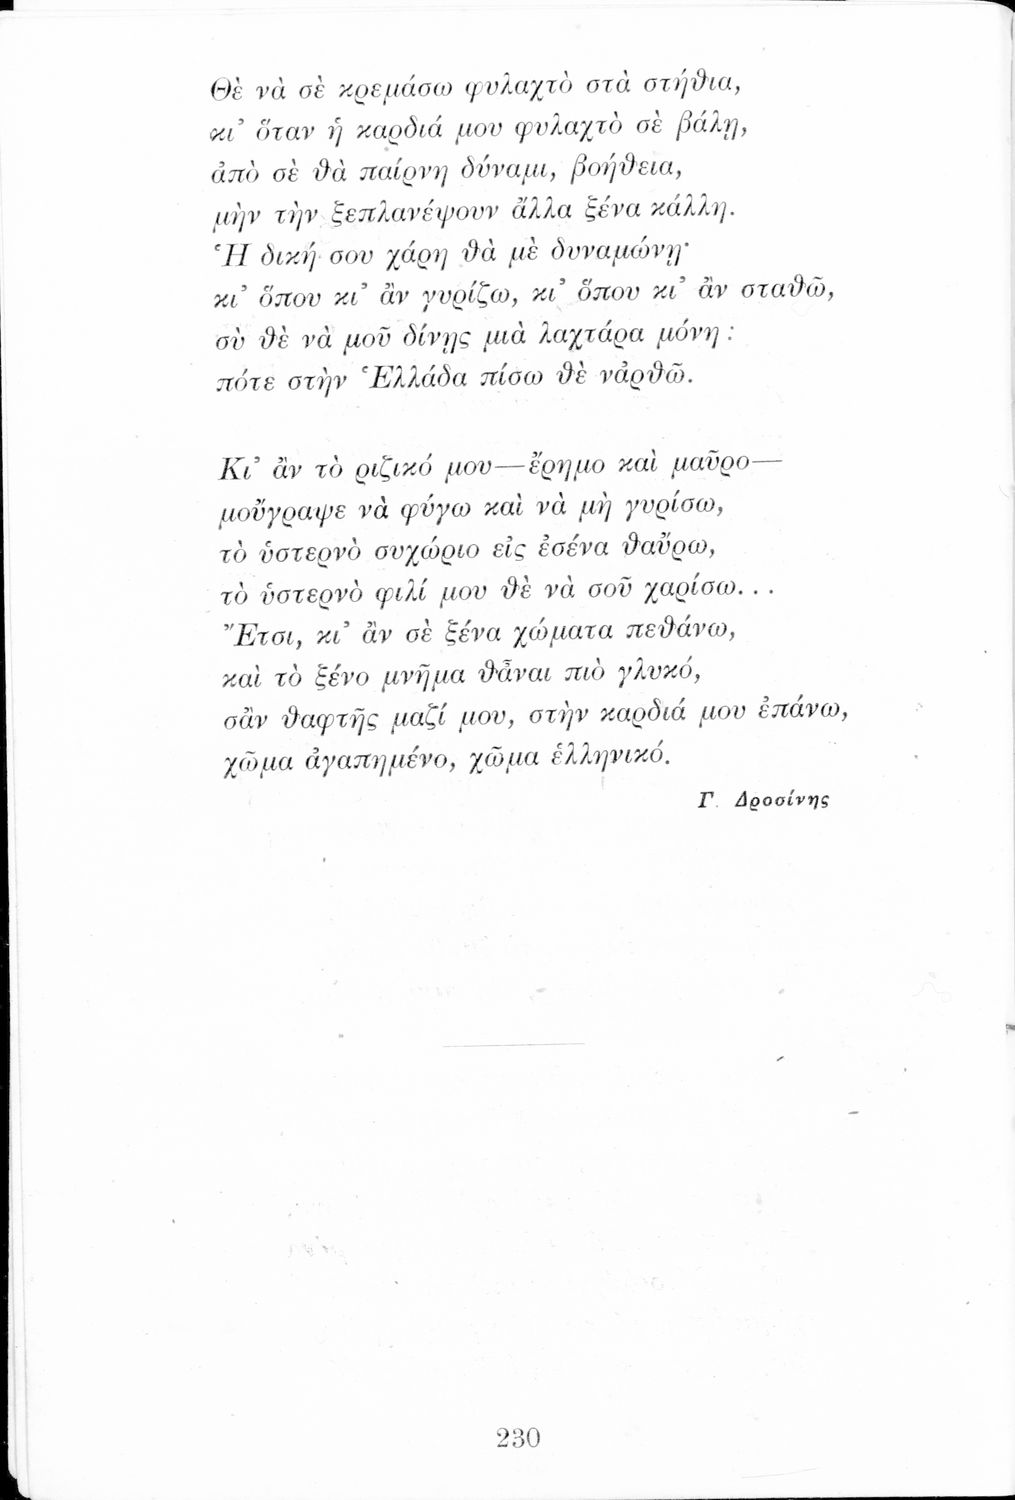 Θὲ νὰ σὲ κρεμάσω φυλαχτὸ στὰ στήθια,
κι’ ὅταν ἡ καρδιά μου φυλαχτὸ σὲ βάλῃ,
ἀπὸ σὲ θὰ παίρνη δύναμι, βοήθεια,
μὴν τὴν ξεπλανέψουν ἄλλα ξένα κάλλη.
Ἡ δική σου χάρη θὰ μὲ δυναμώνῃ·
κι’ ὅπου κι’ ἂν γυρίζω, κι’ ὅπου κι’ ἂν σταθῶ,
σὺ θὲ νὰ μοῦ δίνῃς μιὰ λαχτάρα μόνη :
πότε στὴν Ἑλλάδα πίσω θὲ νἀρθῶ.
Κι’ ἂν τὸ ριζικό μου—ἔρημο καὶ μαῦρο—
μοὔγραψε νὰ φύγω καὶ νὰ μὴ γυρίσω,
τὸ ὑστερνὸ συχώριο εἰς ἐσένα θαὔρω,
τὸ ὑστερνὸ φιλί μου θὲ νὰ σοῦ χαρίσω...
Ἔτσι, κι’ ἂν σὲ ξένα χώματα πεθάνω,
καὶ τὸ ξένο μνῆμα θἆναι πιὸ γλυκό,
σἂν θαφτῆς μαζί μου, στὴν καρδιά μου ἐπάνω,
χῶμα ἀγαπημένο, χῶμα ἑλληνικό.
Γ. Δροσίνης
230